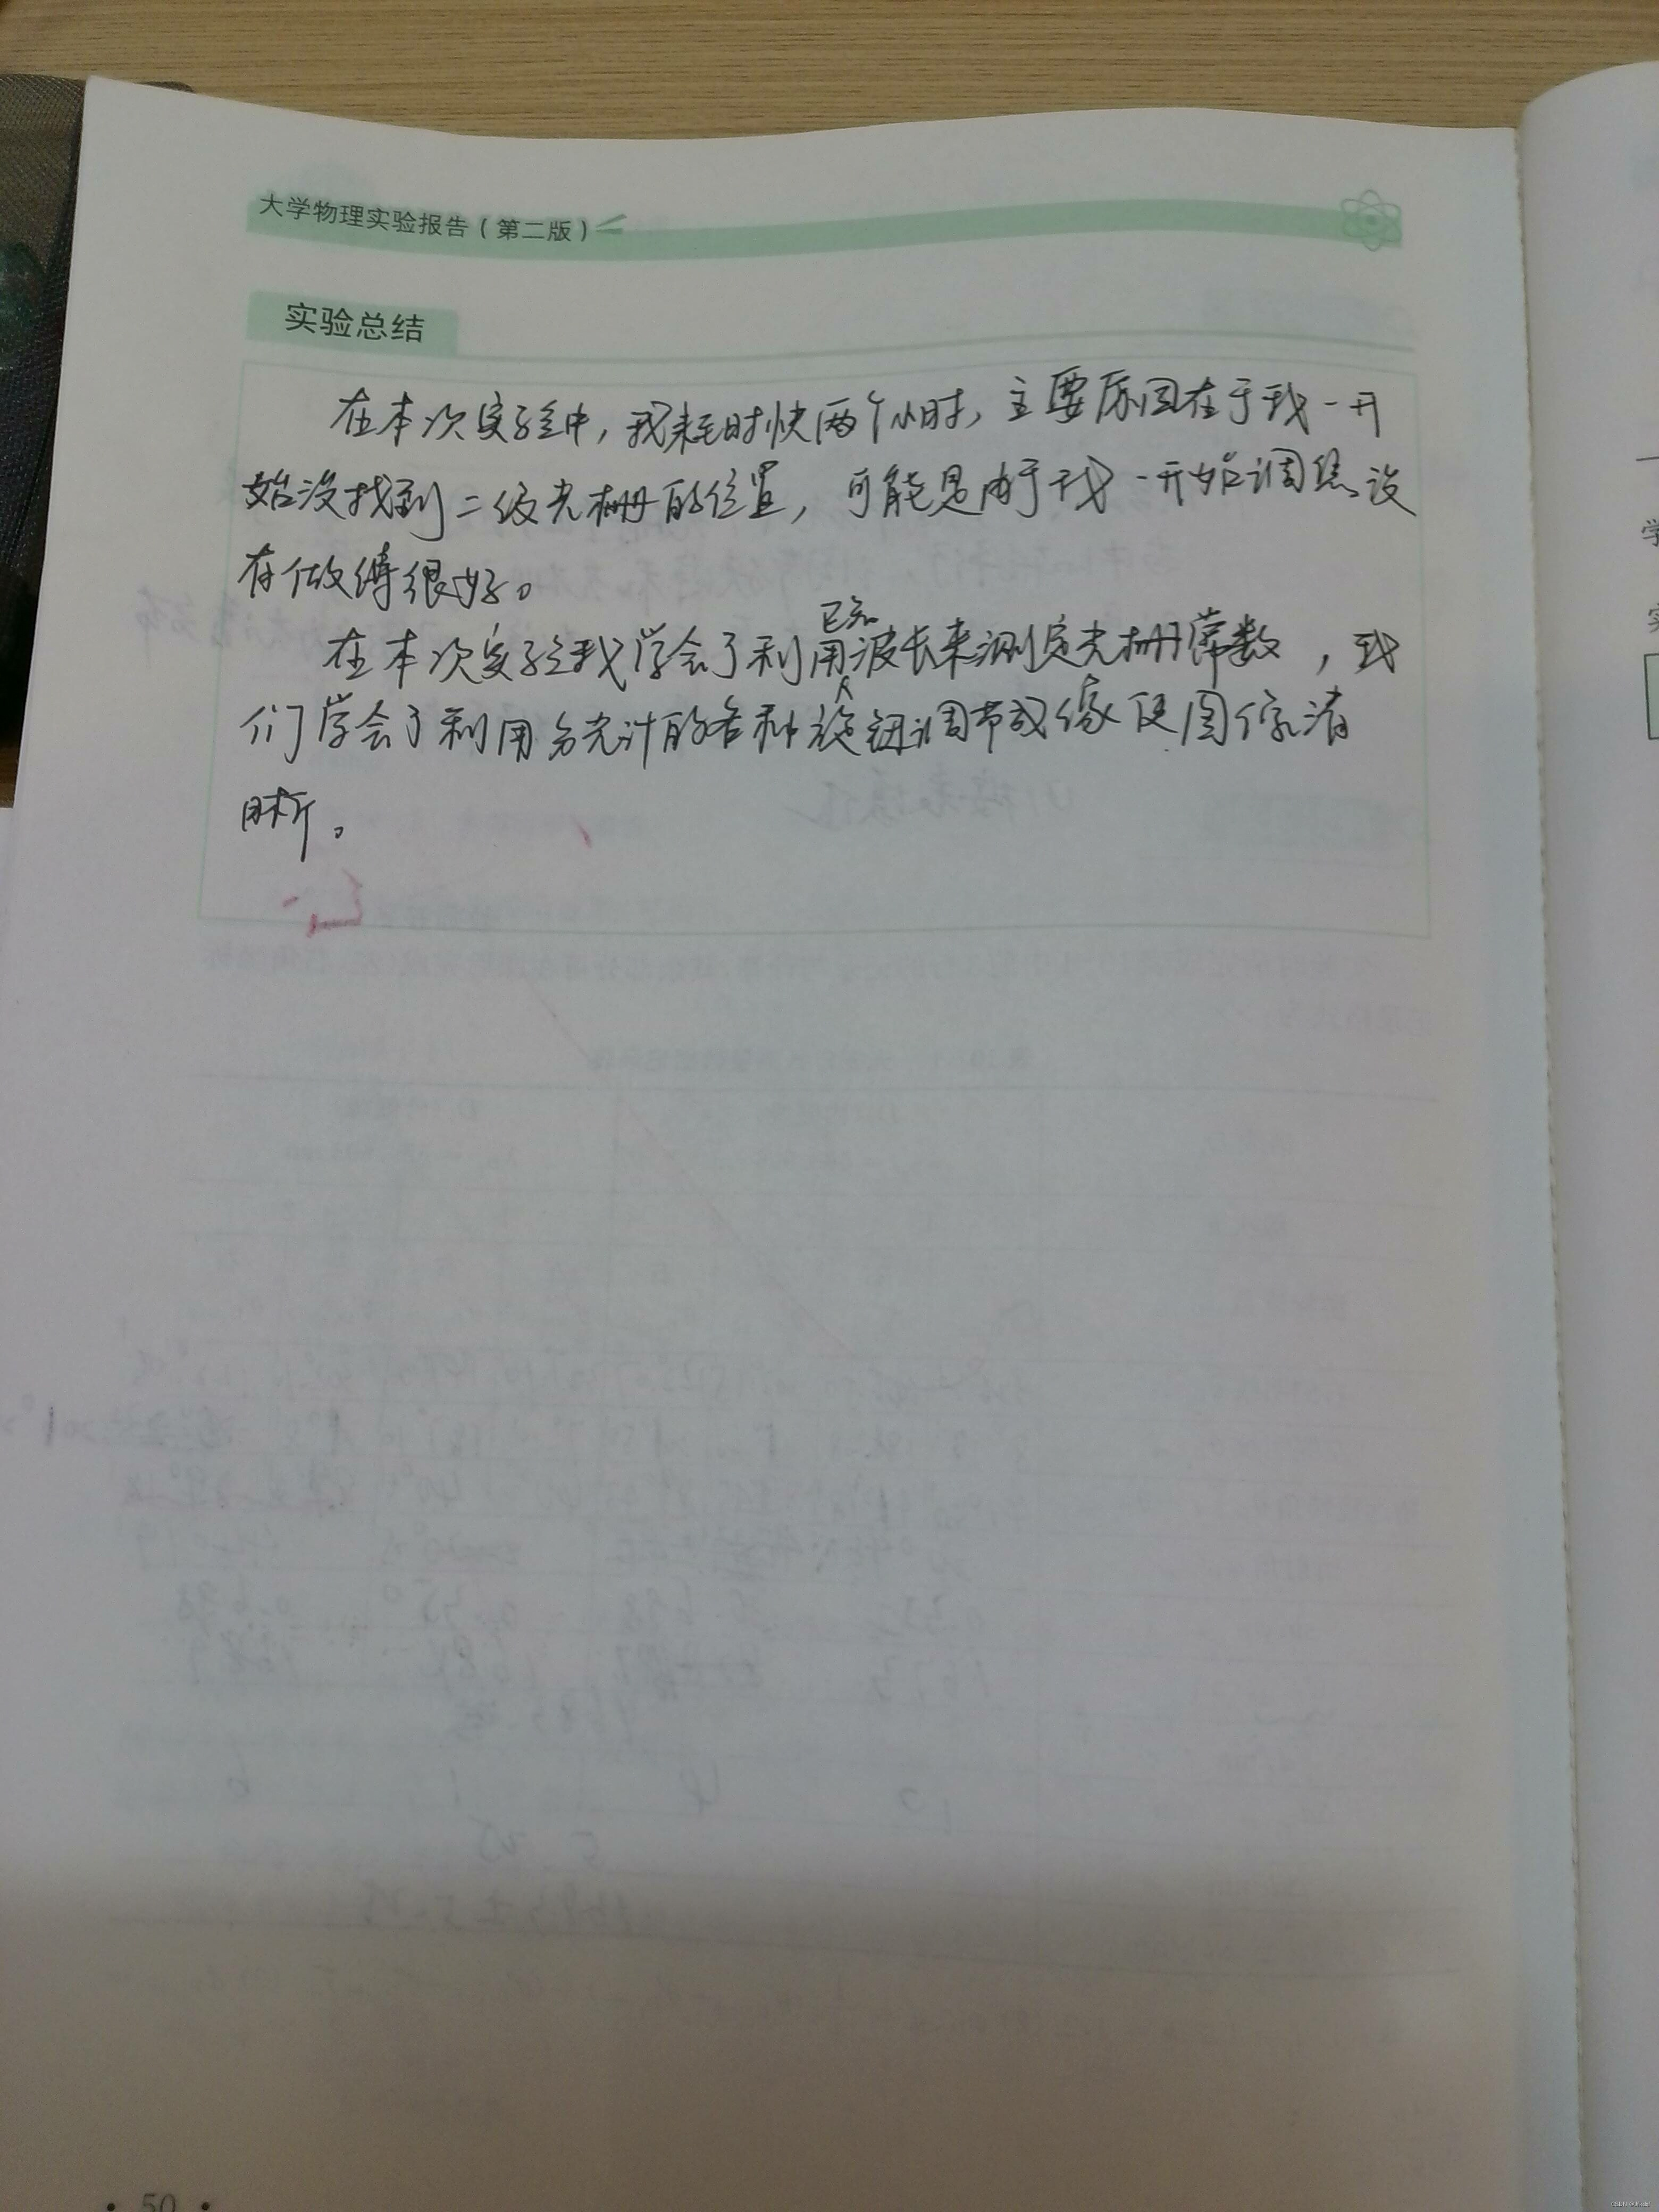 大学物理实验报告（第二版）
实验总结
在本次实验中，我耗时快两个小时，主要原因在于我一开
始没找到二级光栅的位置，可能是由于我一开始调焦没
有做得很好。
在本次实验我学会了利用已知波长来测定光栅常数，我
们学会了利用分光计的各种旋钮调节成像使图像清
晰。
学
实
· 50 ·